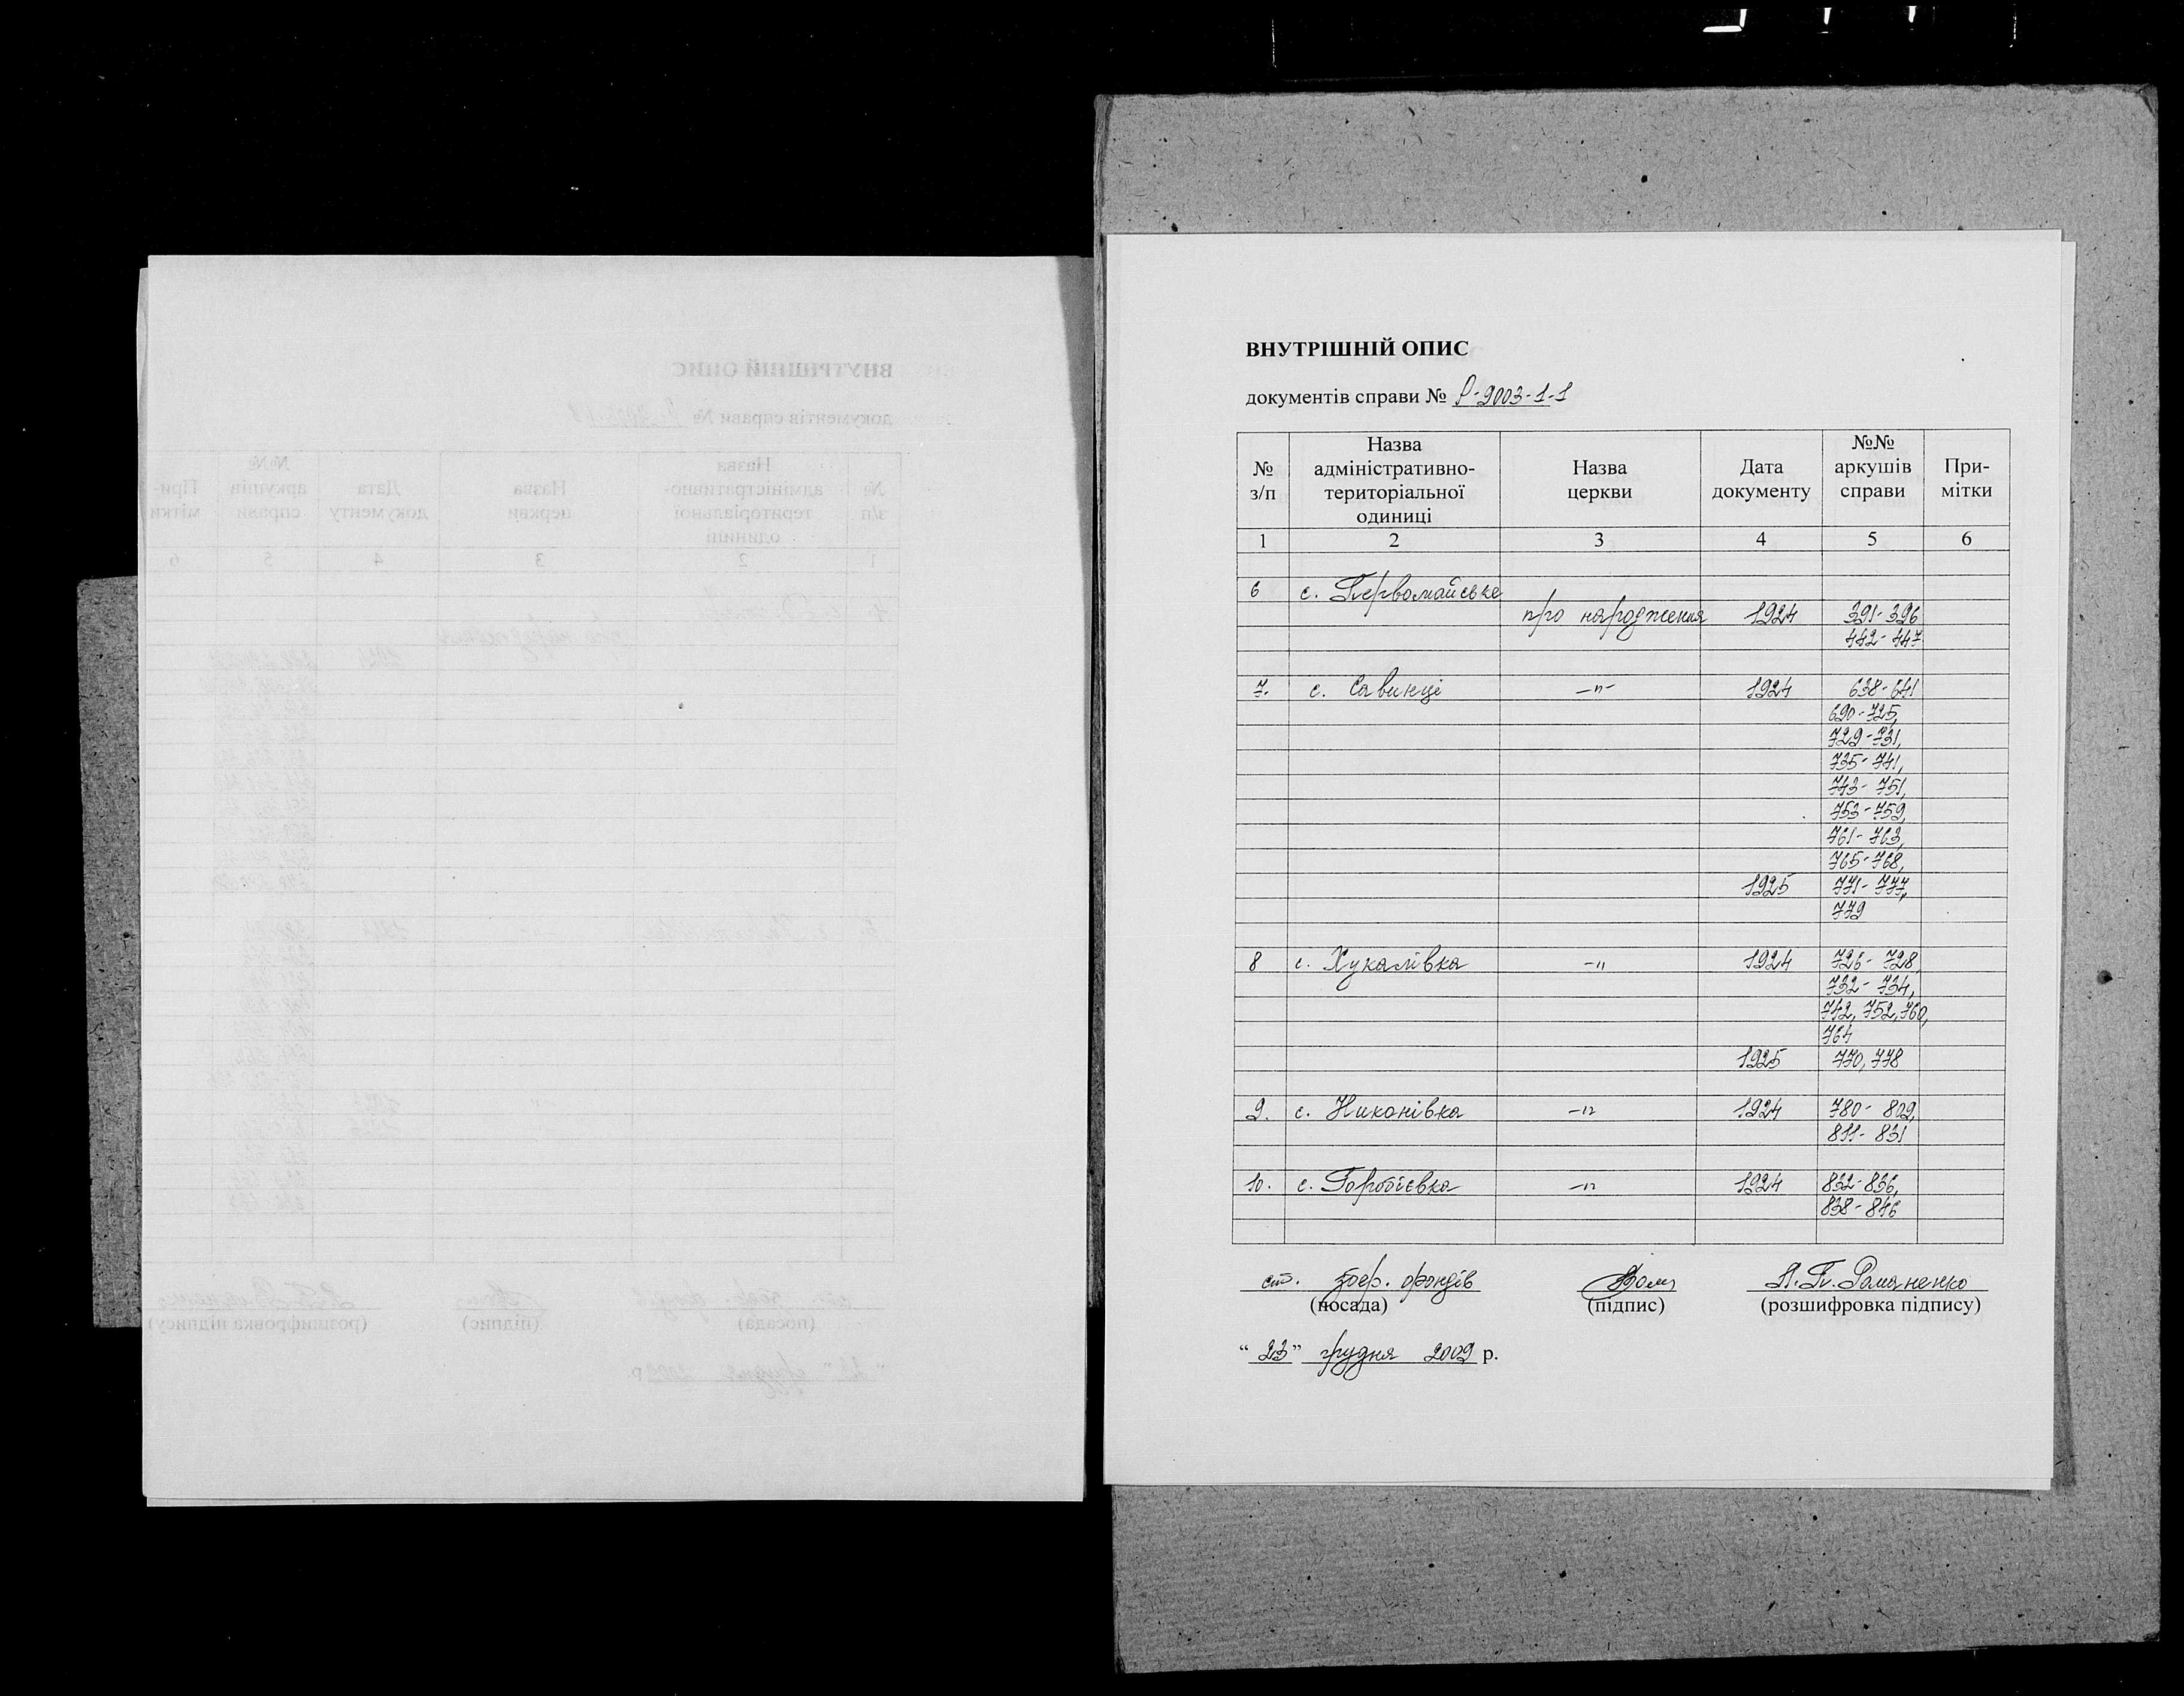 ВНУТРІШНІЙ ОПИС
документів справи № Р-9003-1-1
№ з/п
Назва адміністративно-територіальної одиниці
Назва церкви
Дата документу
№№ аркушів справи
При-мітки
1 2 3 4 5 6
6 с. Первомайське
про народження 1924 391-396
442-447
7. с. Савинці -"- 1924 638-641
690-725,
729-731,
735-741,
743-751,
753-759,
761-763,
765-768,
1925 771-777,
779
8 с. Жукалівка -" 1924 726-728,
732-734,
742, 752, 760,
764
1925 770, 778
9. с. Никонівка -" 1924 780-809,
811-831
10. с. Горобієвка -" 1924 832-836,
838-846
ст. збер. фондів
Л. П. Романенко
(посада) (підпис) (розшифровка підпису)
“23” грудня 2009 р.